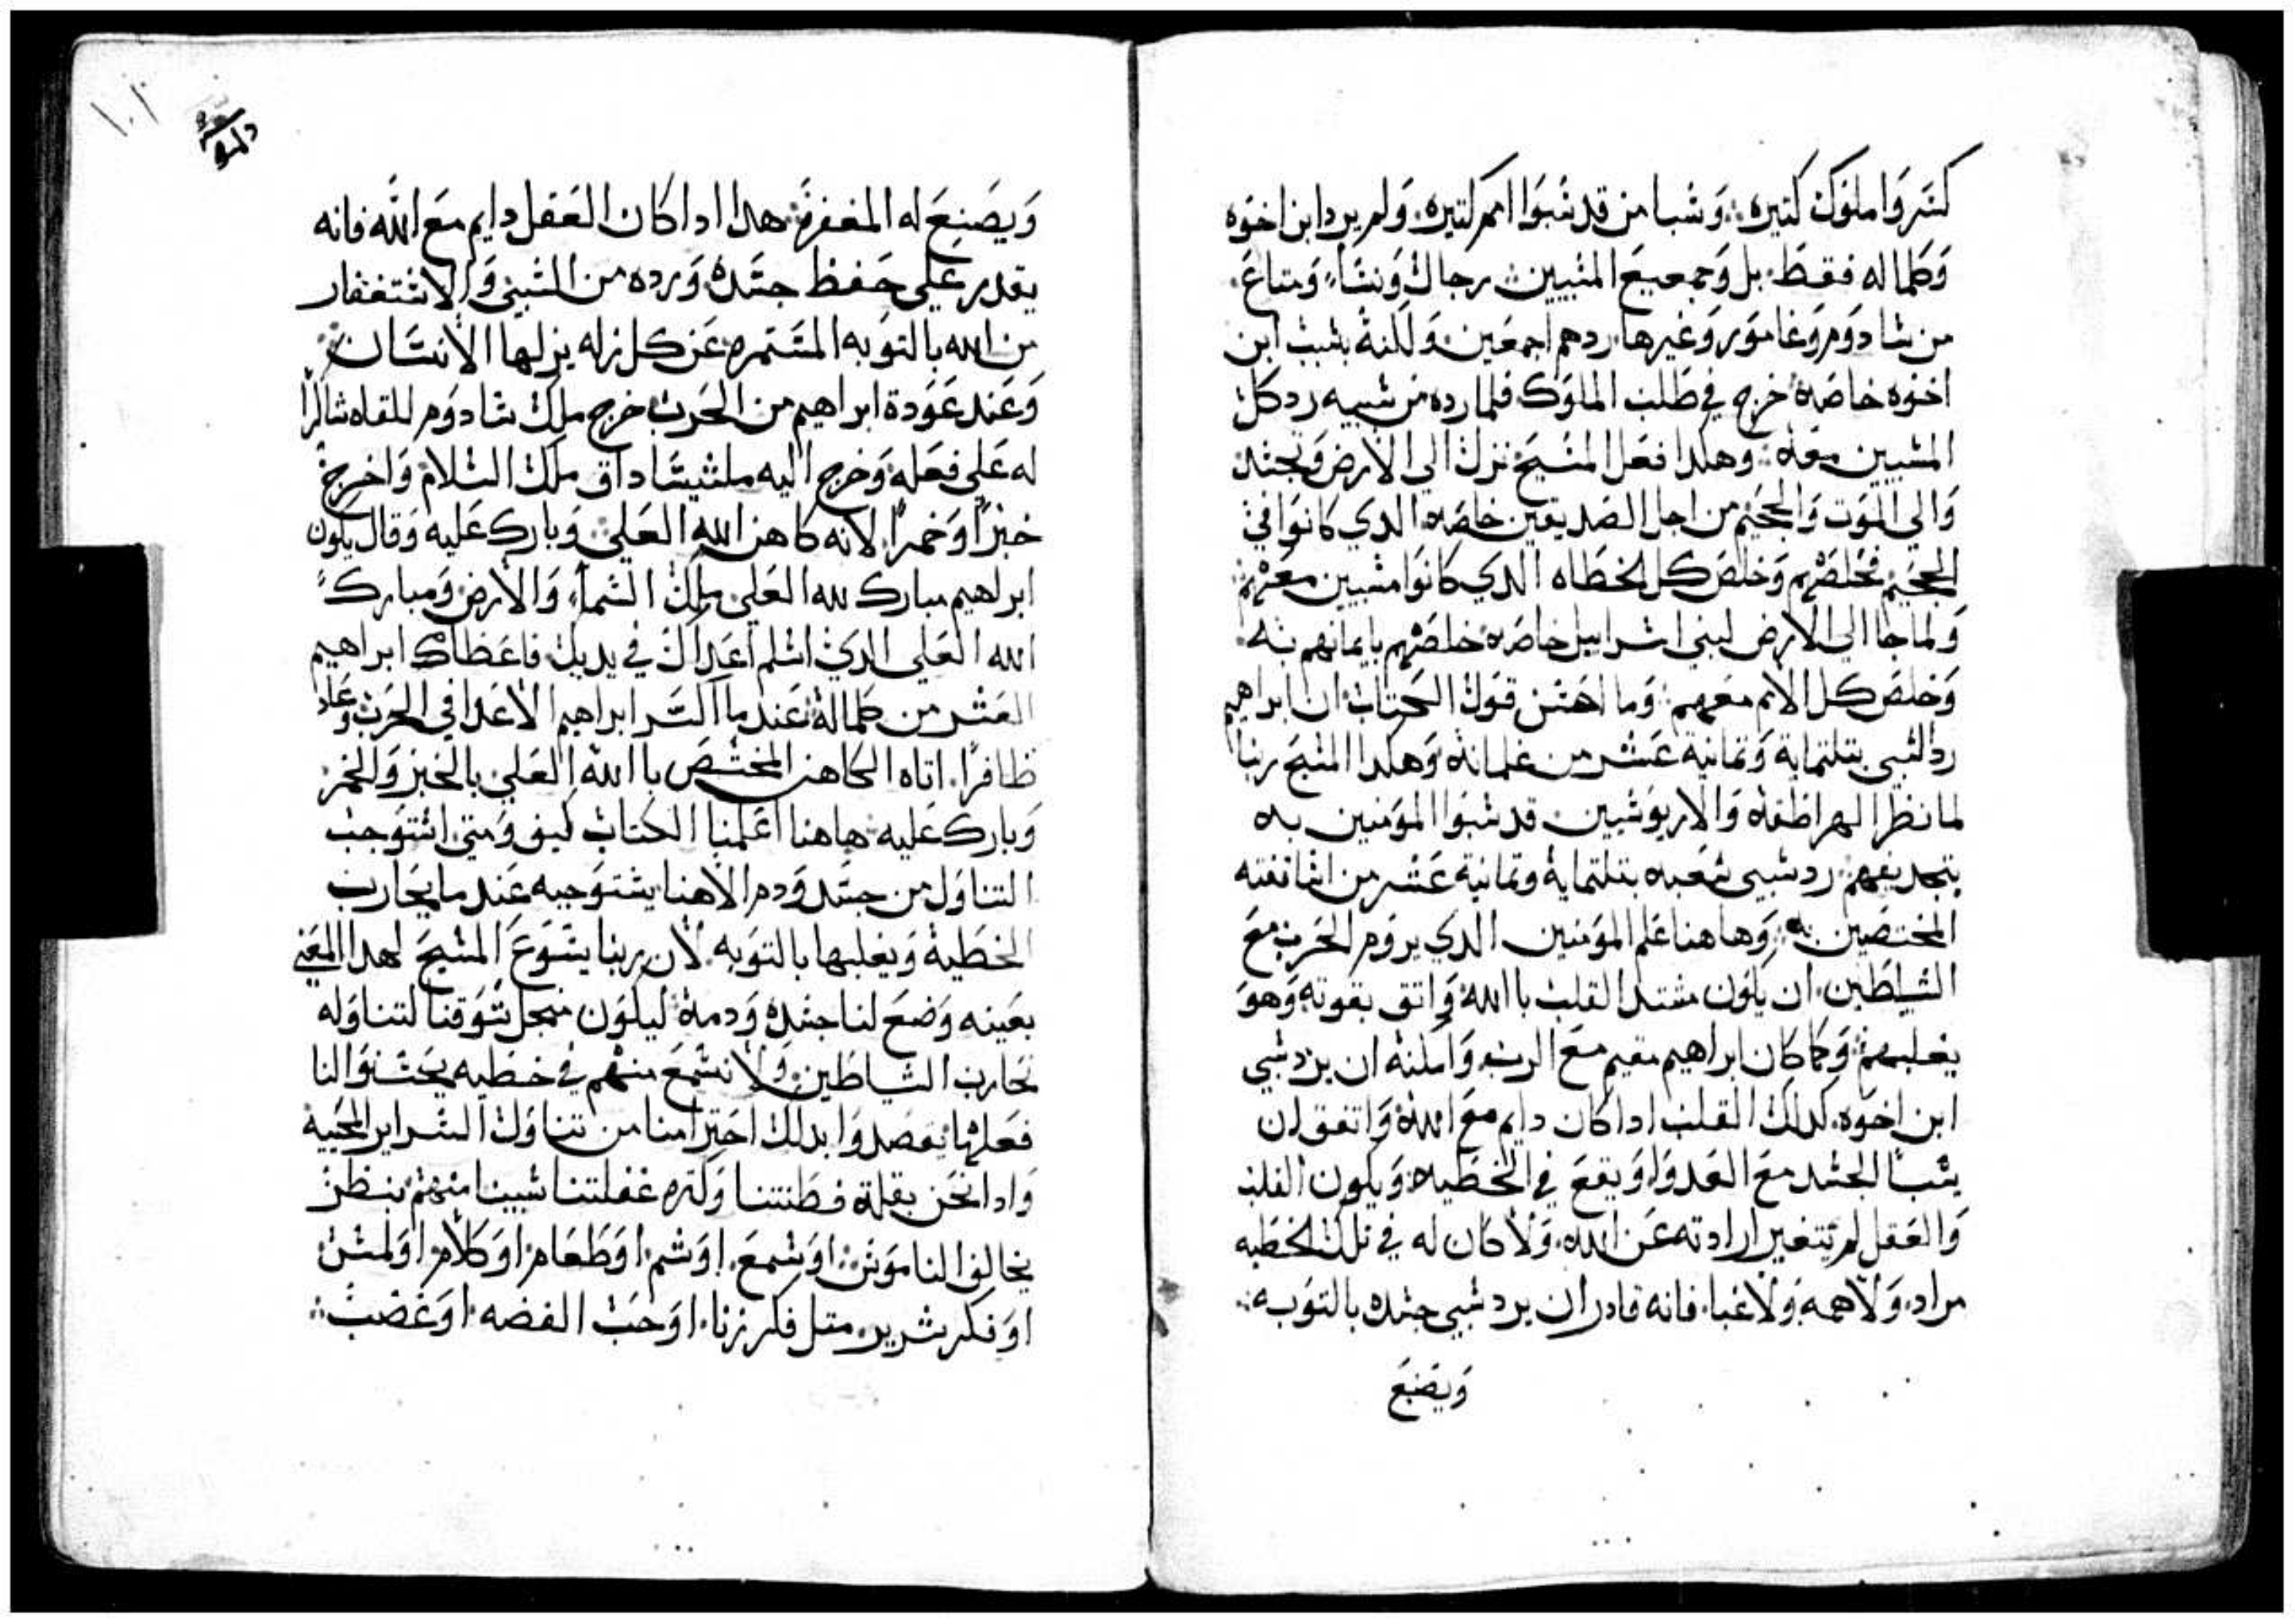 كسروا ملوك كتيره. وسبا من قد سبوا امم كتيره. ولم يرد ابن اخوه
وكلما له فقط. بل وجميع المسبيين رجال ونسا. ومتاع.
من سادوم وغامور وغيرها. ردهم اجمعين. ولكنه بسبب ابن
اخوه خاصه خرج في طلب الملوك. فلما رده من سبيه رد كل
المسبيين معه. وهكدا فعل المسيح نزل الي الارض وتجسد
والي الموت والجحيم من اجل الصديقين خاصه الدي كانوا في
الجحيم فخلصهم وخلص كل الخطاه الدي كانوا مسبيين معهم
ولما جا الي الارض لبني اسراييل خاصه خلصهم بايمانهم به.
وخلص كل الامم معهم. وما احسن قول الكتاب ان ابراهيم
رد السبي بتلتماية وتمانية عشر من غلمانه وهكدا المسيح ربنا
لما نظر الهراطقه والاريوسيين قد سبوا المومنين به
بتجديفهم رد سبي شعبه بتلتماية وتمانية عشر من اساقفته
المختصين به. وهاهنا علم المومنين الدي يروم الحرب مع
الشياطين. ان يكون مشتد القلب باالله واتق بقوته وهو
يغلبهم. وكما كان ابراهيم مقيم مع الرب وامكنه ان يرد سبي
ابن اخوه. كدلك القلب ادا كان دايم مع الله واتفق ان
يسبا الجسد مع العدو او يقع في الخطيه ويكون القلب
والعقل لم يتغير ارادته عن الله. ولا كان له في تلك الخطيه
مراد. ولا همه ولا غبا. فانه قادر ان يرد سبي جسده بالتوبه.
ويصنع
ويصنع له المغفرة. هدا ادا كان العقل دايم مع الله فانه
يقدر علي حفظ جسده ورده من السبي والاستغفار
من الله بالتوبه المستمره عن كل زله يزلها الانسان
وعند عودة ابراهيم من الحرب خرج ملك سادوم للقاه شاكرا
له علي فعله وخرج اليه ملشيساداق ملك السلام واخرج
خبزا وخمرا. لانه كاهن الله العلي وبارك عليه وقال يكون
ابراهيم مبارك لله العلي ملك السماء والارض ومبارك
الله العلي الدي اسلم اعداك في يديك. فاعطاه ابراهيم
العشر من كلماله عندما كسر ابراهيم الاعدا في الحرب وعاد
ظافرا. اتاه الكاهن المختص باالله العلي بالخبز والخمر
وبارك عليه. هاهنا اعلمنا الكتاب كيف ومتي استوجب
التناول من جسد ودم الاهنا يستوجبه عندما يحارب
الخطية ويغلبها بالتوبه. لان ربنا يسوع المسيح لهدا المعني
بعينه وضع لنا جسده ودمه ليكون من اجل تشوقنا لتناوله
نحارب الشياطين. ولا نسمع منهم في خطيه يحسنوا لنا
فعلها يقصدوا بدلك احترامنا من تناول السراير المحييه
وادا نحن بقلة فطنتنا وكتره غفلتنا سبينا منهم بنظر
يخالف الناموس. او سمع. او شم او طعام. او كلام. او لمس
او فكر شرير. متل فكر زنا. او حب الفضه. او غضب